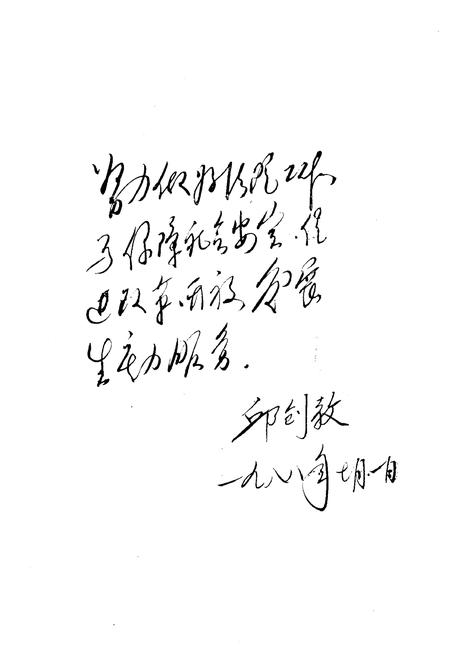 努力做好法院工作
为保障社会安定、促
进改革、开放、发展
生产力服务.
邱创教
一九八八年七月一日